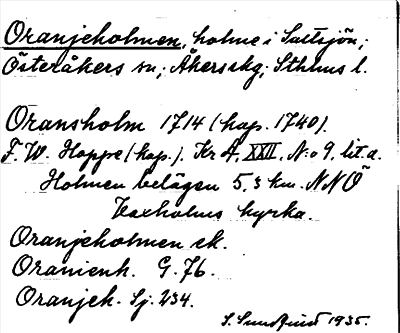 Oranjeholmen, holme i Saltsjön;
Österåkers sn; Åkers skg; Sthlms l.
Oransholm 1714 (kop. 1740).
F. W. Hoppe (kop.). Kr A, XXII, N:o 9, lit. a.
Holmen belägen 5,3 km. N N Ö
Vaxholms kyrka.
Oranjeholmen ek.
Oranienh. G. 76.
Oranjeh. Sj. 234.
1935.